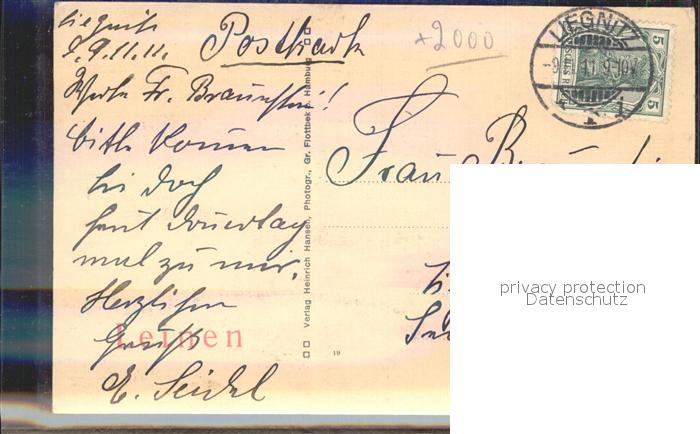 Liegnitz
d. 9.11.11.
Postkarte
*2000
LIEGNITZ
-9. 11 9-10V
5
5
Werte Fr. Braunstein!
bitte kommen
Sie doch
heut Donnerstag
mal zu mir,
Herzlichen
Gruß
E. Seidel
Leinen
Frau
Verlag Heinrich Hansen, Photogr., Gr. Flottbek - Hamburg
19
privacy protection
Datenschutz